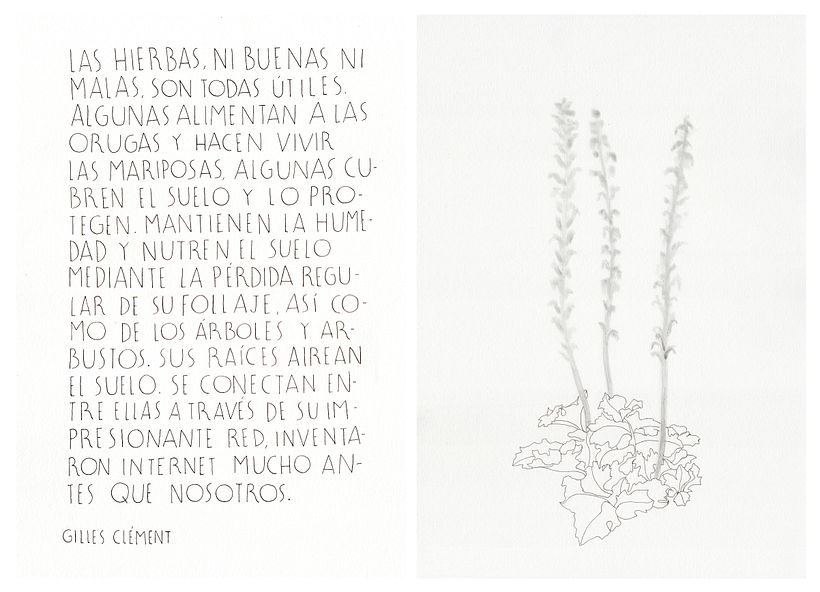 LAS HIERBAS, NI BUENAS NI
MALAS, SON TODAS ÚTILES.
ALGUNAS ALIMENTAN A LAS
ORUGAS Y HACEN VIVIR
LAS MARIPOSAS, ALGUNAS CU-
BREN EL SUELO Y LO PRO-
TEGEN. MANTIENEN LA HUME-
DAD Y NUTREN EL SUELO
MEDIANTE LA PÉRDIDA REGU-
LAR DE SU FOLLAJE, ASÍ CO-
MO DE LOS ÁRBOLES Y AR-
BUSTOS. SUS RAÍCES AIREAN
EL SUELO. SE CONECTAN EN-
TRE ELLAS A TRAVÉS DE SU IM-
PRESIONANTE RED, INVENTA-
RON INTERNET MUCHO AN-
TES QUE NOSOTROS.
GILLES CLÉMENT